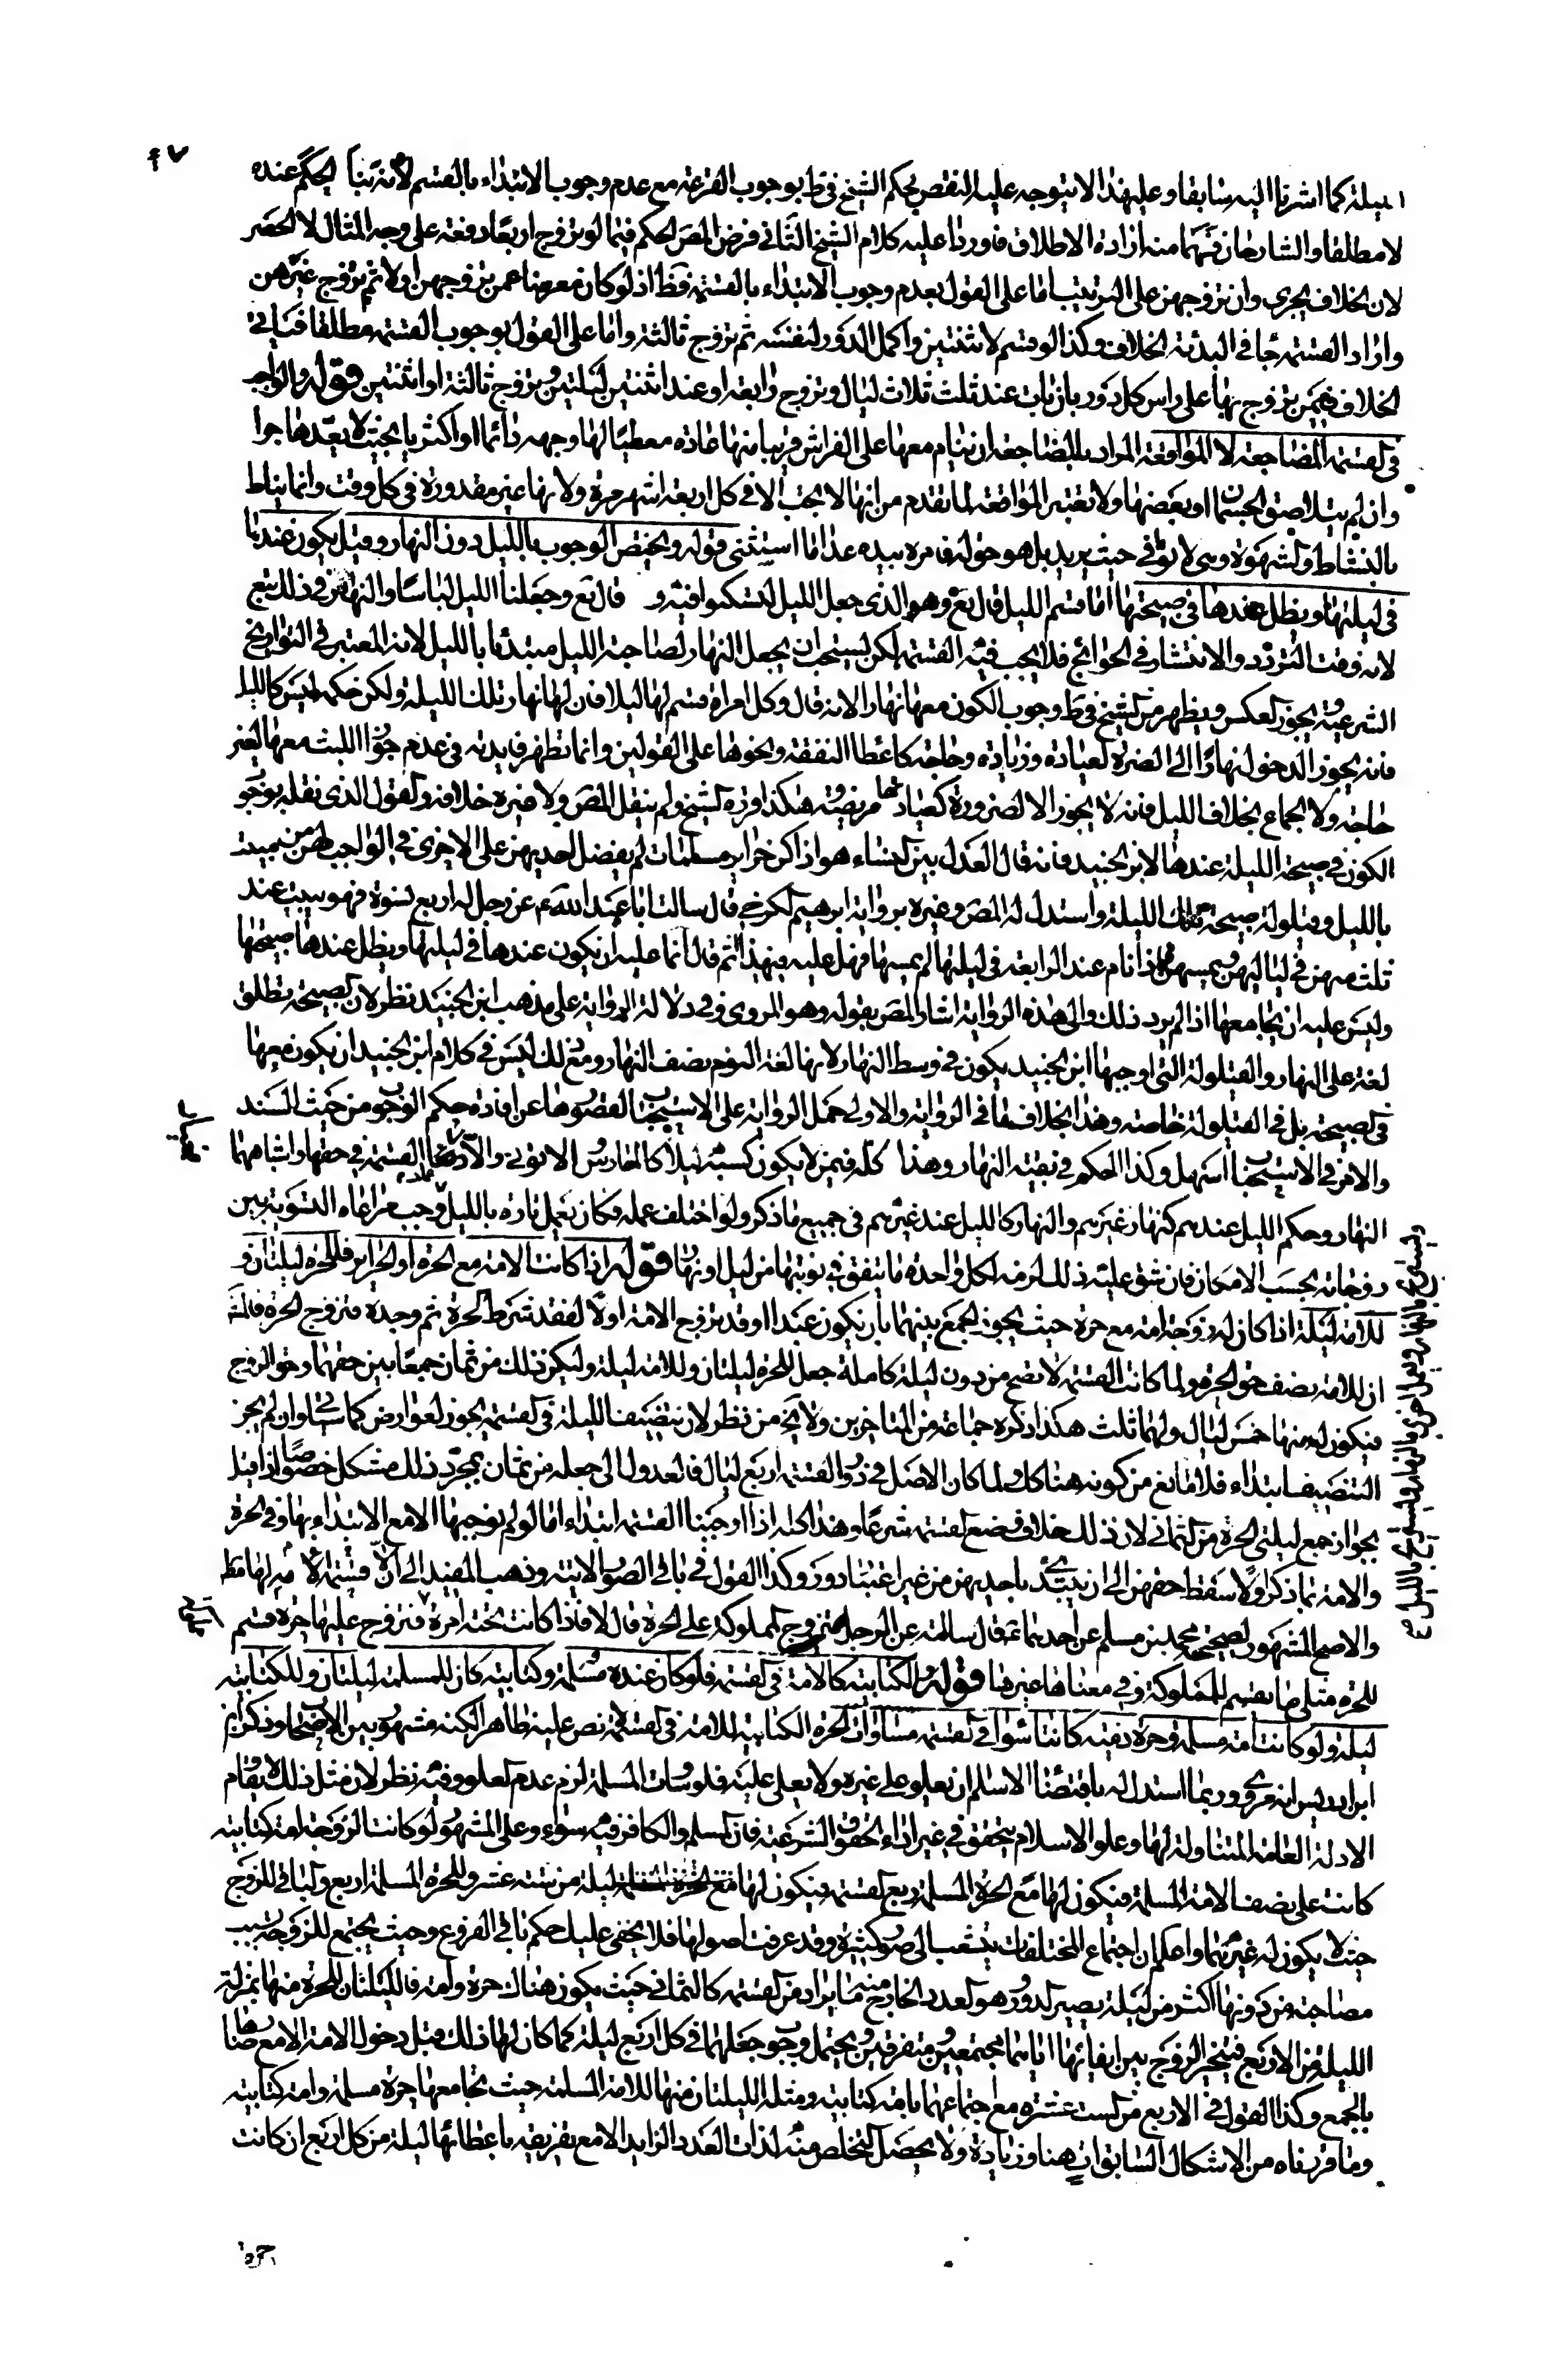 ٩٧
الميلة كما اشرنا اليه سابقا وعلى هذا لا يتوجه عليه النقص بحكم الشيخ في ط بوجوب القرعة مع عدم وجوب الابتداء بالقسم لانه بناء الحكم عنده
لا مطلقا والشارحان فهما منه ارادة الاطلاق فاوردا عليه كلام الشيخ الثاني فرض المص الحكم فيما لو تزوج اربعا دفعة على وجه المثال لا الحصر
لان الخلاف يجرى وان تزوجهن على الترتيب اما على القول بعدم وجوب الابتداء بالقسمة فظ اذ لو كان معرضا عمن تزوجهن اولا ثم تزوج غيرهن
واراد القسمة جا في البدئة الخلاف وكذا لو قسم لاثنتين واكمل الدور لنفسه ثم تزوج ثالثة واما على القول بوجوب القسمة مطلقا فياتى
الخلاف فيمن تزوج بها على راس كل دور بان بات عند ثلث ثلاث ليال وتزوج رابعة او عند اثنتين ليلتين وتزوج ثالثة او اثنتين قوله والواجب
في القسمة المضاجعة لا المواقعة المراد بالمضاجعة ان ينام معها على الفراش قريبا منها عادة معطيا لها وجهه دائما او اكثريا بحيث لا يعد هاجرا
وان لم يتلاصق الجسمان او بعضهما ولا تعتبر المواقعة لما تقدم من انها لا يجب الا في كل اربعة اشهر مرة ولانها غير مقدورة في كل وقت وانما يناط
بالنشاط والشهوة وهى لا تواتى حيث يريد بل هو حق له فامره بيده عدا ما استثنى قوله ويختص الوجوب بالليل دون النهار وقيل يكون عندها
في ليلتها ويظل عندها في صبيحتها اما قسم الليل قال تع وهو الذى جعل الليل لتسكنوا فيه و قال تع وجعلنا الليل لباسا والنهار في ذلك تبع
لانه وقت التردد والانتشار في الحوائج فلا يجب فيه القسمة لكن يستحب ان يجعل النهار لصاحبة الليل مبتدئا بالليل لانه المعتبر في التواريخ
الشرعية ويجوز العكس ويظهر من الشيخ في ط وجوب الكون معها نهارا لانه قال وكل امراة قسم لها ليلا فان لها نهار تلك الليلة ولكن حكمه ليس كالليل
فانه يجوز الدخول نهارا الى الضرة لعيادة وزيادة وحاجة كاعطاء النفقة ونحوها على القولين وانما تظهر فايدته في عدم جواز اللبث معها لغير
حاجة ولا الجماع بخلاف الليل فانه لا يجوز الا لضرورة كعيادتها مريضة هكذا قرره الشيخ ولم ينقل المص ولا غيره خلافه والقول الذى نقله بوجوب
الكون في صبيحة الليلة عندها لابن الجنيد فانه قال العدل بين النساء هو اذا كن حراير مسلمات لم يفضل احديهن على الاخرى في الواجب لهن من مبيت
بالليل وقيلولة صبيحة تلك الليلة واستدل له المص وغيره برواية ابرهيم الكرخي قال سالت ابا عبد الله ع عن رجل له اربع نسوة فهو يبيت عند
ثلث منهن في لياليهن ويمسهن فاذا نام عند الرابعة في ليلتها لم يمسها فهل عليه في هذا اثم قال انما عليه ان يكون عندها في ليلتها ويظل عندها صبيحتها
وليس عليه ان يجامعها اذا لم يرد ذلك والى هذه الرواية اشار المص بقوله وهو المروى وفي دلالة الرواية على مذهب ابن الجنيد نظر لان الصبيحة تطلق
لغة على النهار والقيلولة التي اوجبها ابن الجنيد يكون في وسط النهار لانها لغة النوم نصف النهار ومع ذلك ليس في كلام ابن الجنيد ان يكون معها
في الصبيحة بل في القيلولة خاصة وهذا بخلاف ما في الرواية والاولى حمل الرواية على الاستحباب لقصورها عن افادة حكم الوجوب من حيث السند
والامر في الاستحباب اسهل وكذا الحكم في بقية النهار وهذا كله فيمن لا يكون كسبه ليلا كالحارس والاتونى والا فعماد القسمة في حقهما واشباههما
النهار وحكم الليل عندهم كنهار غيرهم والنهار كالليل عند غيرهم في جميع ما ذكر ولو اختلف عمله فكان يعمل تارة بالليل وجب مراعاة التسوية بين
زوجاته بحسب الامكان فان شق عليه ذلك لزمه لكل واحدة ما يتفق في نوبتها من ليل او نهار قوله اذا كانت الامة مع الحرة او الحراير فللحرة ليلتان و
للامة ليلة اذا كان له زوجة امة مع حرة حيث يجوز الجمع بينهما بان يكون عبدا او قد تزوج الامة اولا لفقد شرط الحرة ثم وجده فتزوج الحرة فالمشه
ان للامة نصف حق الحرة ولما كانت القسمة لا تصح من دون ليلة كاملة جعل للحرة ليلتان وللامة ليلة وليكن ذلك من ثمان جمعا بين حقهما وحق الزوج
فيكون له منها خمس ليال ولهما ثلث هكذا ذكره جماعة من المتاخرين ولا يخ من نظر لان تنصيف الليلة في القسمة يجوز لعوارض كما سياتى وان لم يجز
التنصيف ابتداء فلا مانع من كونه هنا كك ولما كان الاصل في دور القسمة اربع ليال فالعدول الى جعله من ثمان بمجرد ذلك مشكل خصوصا اذا قيل
بجواز جمع ليلتى الحرة من الثمانى لان ذلك خلاف وضع القسمة شرعا وهذا كله اذا اوجبنا القسمة ابتداء اما لو لم نوجبها الا مع الابتداء بها وفي الحرة
والامة بما ذكر اولا سقط حقهن الى ان يبتدئ باحديهن من غير اعتبار دور وكذا القول في باقى الصور الاتية وذهب المفيد الى ان لا قسمة للامة لها مط
والاصح المشهور لصحيحة محمد بن مسلم عن احدهما ع قال سالته عن الرجل يتزوج المملوكة على الحرة قال لا فاذا كانت تحته امرة فتزوج عليها حرة قسم
للحرة مثلى ما يقسم للمملوكة وفي معناها غيرها قوله والكتابية كالامة في القسمة فلو كان عنده مسلمة وكتابية كان للمسلمة ليلتان وللكتابية
ليلة ولو كانت امة مسلمة وحرة ذمية كانتا سواء في القسمة مساواة الحرة الكتابية للامة في القسمة لا نص عليه ظاهرا لكنه مشهور بين الاصحاب وذكر ابن
ابن ادريس انه مروى وربما استدل له باقتضاء الاسلام ان يعلو على غيره ولا يعلى عليه فلو ساوت المسلمة لزم عدم العلو وفيه نظر لان مثل ذلك لا يقاوم
الادلة العامة المتناولة لها وعلو الاسلام يتحقق في غير اداء الحقوق الشرعية فان المسلم والكافر فيه سواء وعلى المشهور لو كانت الزوجة امة كتابية
كانت على نصف الامة المسلمة فيكون لها مع الحرة المسلمة ربع القسمة فيكون لها ليلة من ستة عشر وللحرة المسلمة اربع والباقى للزوج
حيث لا يكون له غيرهما واعلم ان اجتماع المختلفات يتشعب الى صور كثيرة وقد عرفت اصولها فلا يخفى عليك حكم باقى الفروع وحيث يجتمع للزوجة بسبب
مصاحبة من دونها اكثر من ليلة يصير الدور هو العدد الخارج منه ما يراد من القسمة كالثمانى حيث يكون هناك حرة وامة فالليلتان للحرة منها بمنزلة
الليلة من الاربع فيتخير الزوج بين ايفائها اياهما مجتمعين ومتفرقين ويحتمل وجوب جعلهما في كل اربع ليلة كما كان لها ذلك قبل دخول الامة الا مع رضاها
بالجمع وكذا القول في الاربع من الست عشرة مع اجتماعهما بامة كتابية ومثله الليلتان منها للامة المسلمة حيث تجامعها حرة مسلمة وامة كتابية
وما قررناه من الاشكال السابق ات هنا وزيادة ولا يحصل التخلص منه لذات العدد الزايد الا مع تفريقه باعطائها ليلة من كل اربع ان كانت
حرة